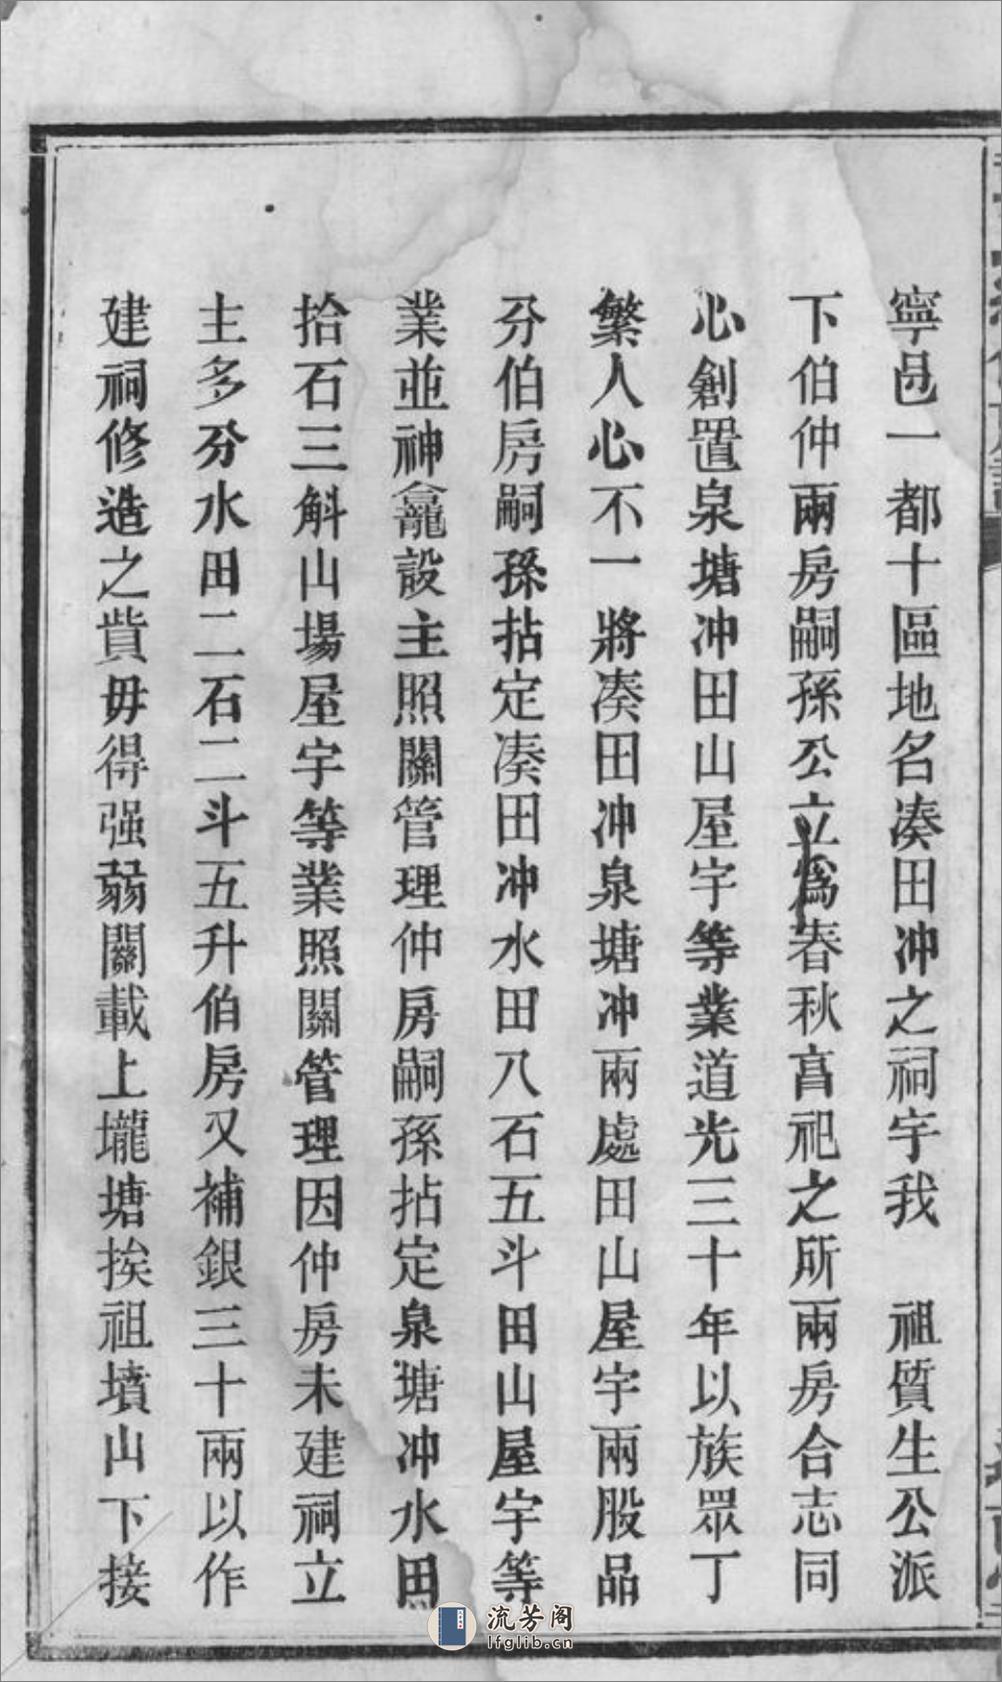 寧邑一都十區地名凑田冲之祠宇我　祖質生公派
下伯仲兩房嗣孫公立爲春秋亯祀之所兩房合志同
心創置泉塘冲田山屋宇等業道光三十年以族眾丁
繁人心不一將凑田冲泉塘冲兩處田山屋宇兩股品
分伯房嗣孫拈定凑田冲水田八石五斗田山屋宇等
業並神龕設主照關管理仲房嗣孫拈定泉塘冲水田
拾石三斛山場屋宇等業照關管理因仲房未建祠立
主多分水田二石二斗五升伯房又補銀三十兩以作
建祠修造之貲毋得强弱關載上壠塘挨祖墳山下接
流芳阁
lfglib.cn